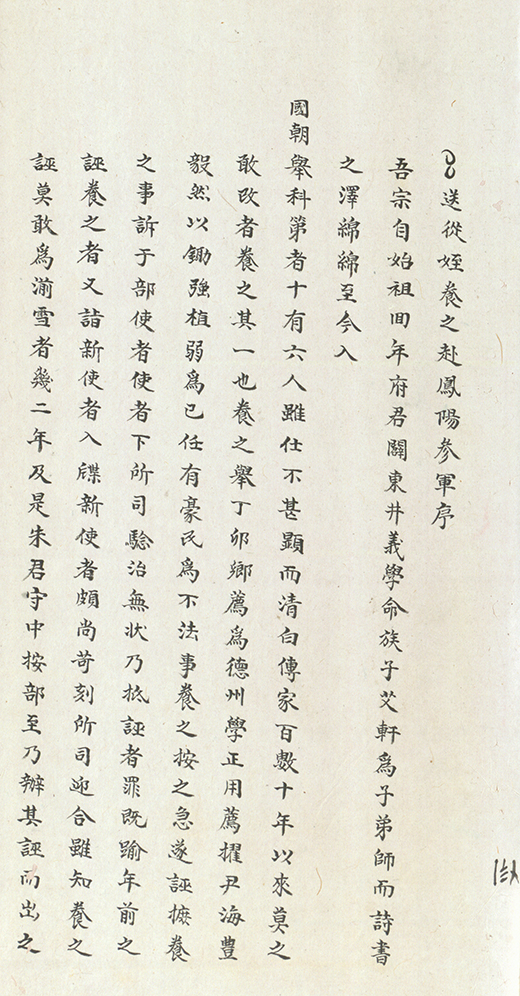 送從姪養之赴鳳陽參軍序
吾宗自始祖回年府君闢東井義學命族子艾軒爲子弟師而詩書
之澤綿綿至今入
國朝舉科第者十有六人雖仕不甚顯而清白傳家百數十年以來莫之
敢改者養之其一也養之舉丁卯鄉薦爲德州學正用薦擢尹海豊
毅然以鋤强植弱爲己任有豪民爲不法事養之按之急遂誣摭養
之事訴于部使者使者下所司驗治無狀乃抵誣者罪既踰年前之
誣養之者又詣新使者入牒新使者頗尚苛刻所司迎合雖知養之
誣莫敢爲湔雪者幾二年及是朱君守中按部至乃辦其誣而出之